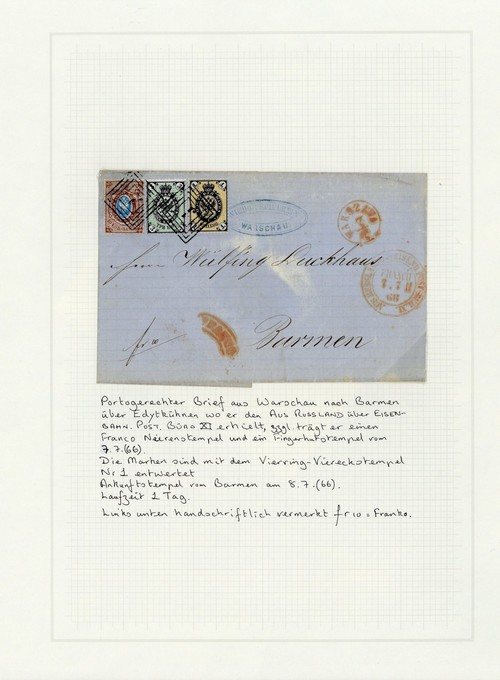 WARSCHAU
Herrn Wülfing Luckhaus
FRANCO
7 7 II
66
fro
Barmen
Portogerechter Brief aus Warschau nach Barmen
über Edytkühnen wo er den AUS RUSSLAND über EISEN-
BAHN. POST. BÜRO XI erhielt, zzgl. trägt er einen
Franco Nierenstempel und ein Fingerhutstempel vom
7.7.(66).
Die Marken sind mit dem Vierring-Viereckstempel
Nr 1 entwertet
Ankunftstempel von Barmen am 8.7.(66).
Laufzeit 1 Tag.
Links unten handschriftlich vermerkt fro = Franko.